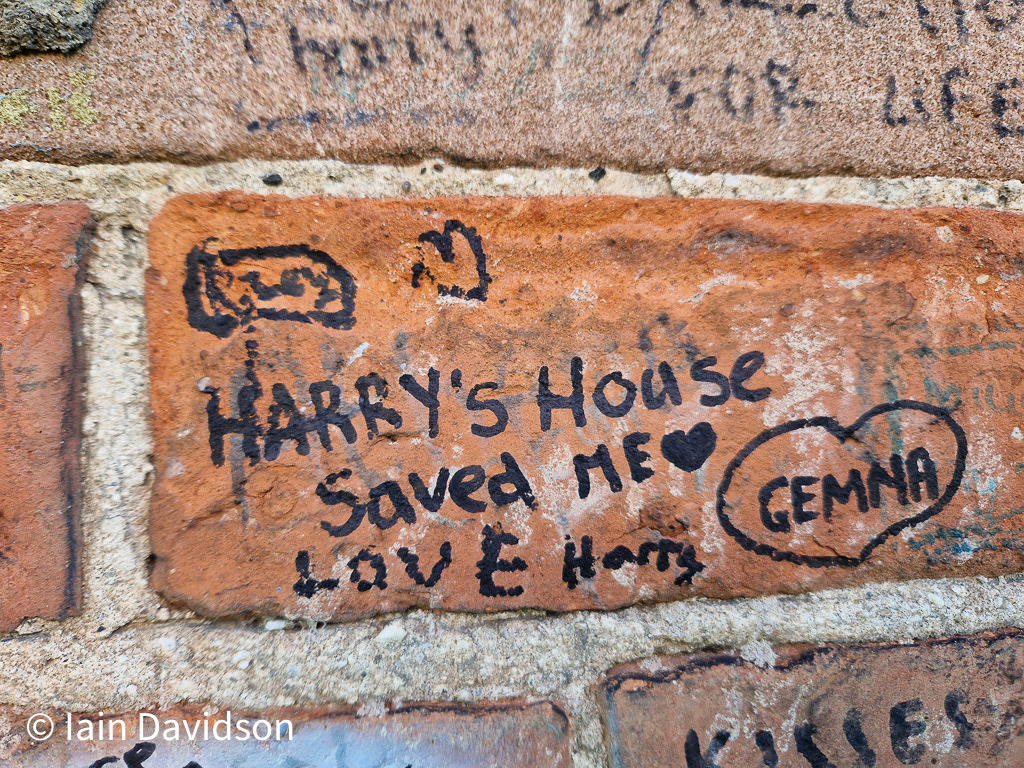 Harry
FOR LIFE
HARRY'S HOUSE
Saved ME♥
GEMMA
LOVE Harry
KISSES
© Iain Davidson